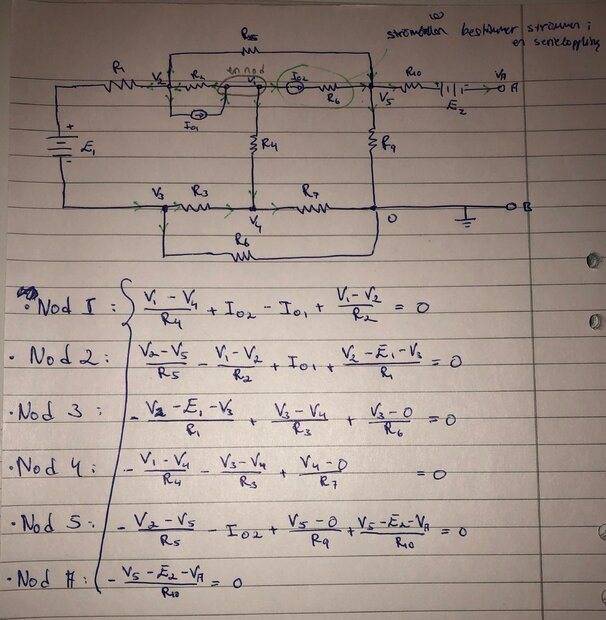 strömkällan bestämmer strömmen i
en seriekoppling
R5
R1 V2 R2 en nod V1 I02 R6 V5 R10 E2 VA A
I01
+
E1
-
R4 R9
V3 R3 V4 R7 0 B
R6
• Nod 1: (V1 - V4)/R4 + I02 - I01 + (V1 - V2)/R2 = 0
• Nod 2: (V2 - V5)/R5 - (V1 - V2)/R2 + I01 + (V2 - E1 - V3)/R1 = 0
• Nod 3: - (V2 - E1 - V3)/R1 + (V3 - V4)/R3 + (V3 - 0)/R6 = 0
• Nod 4: - (V1 - V4)/R4 - (V3 - V4)/R3 + (V4 - 0)/R7 = 0
• Nod 5: - (V2 - V5)/R5 - I02 + (V5 - 0)/R9 + (V5 - E2 - VA)/R10 = 0
• Nod A: - (V5 - E2 - VA)/R10 = 0